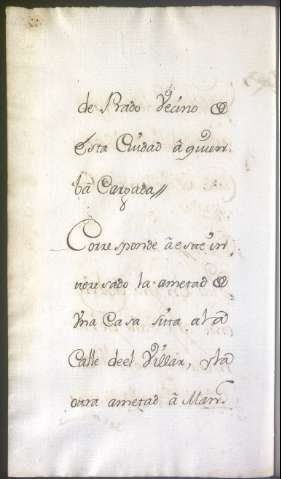 de Prado Vecino de
esta Ciudad â quien
bâ Cargada//
Corresponde â este in
teresado la ametad de
Vna Casa sita a la
Calle deel Villar, y la
otra ametad â Man.